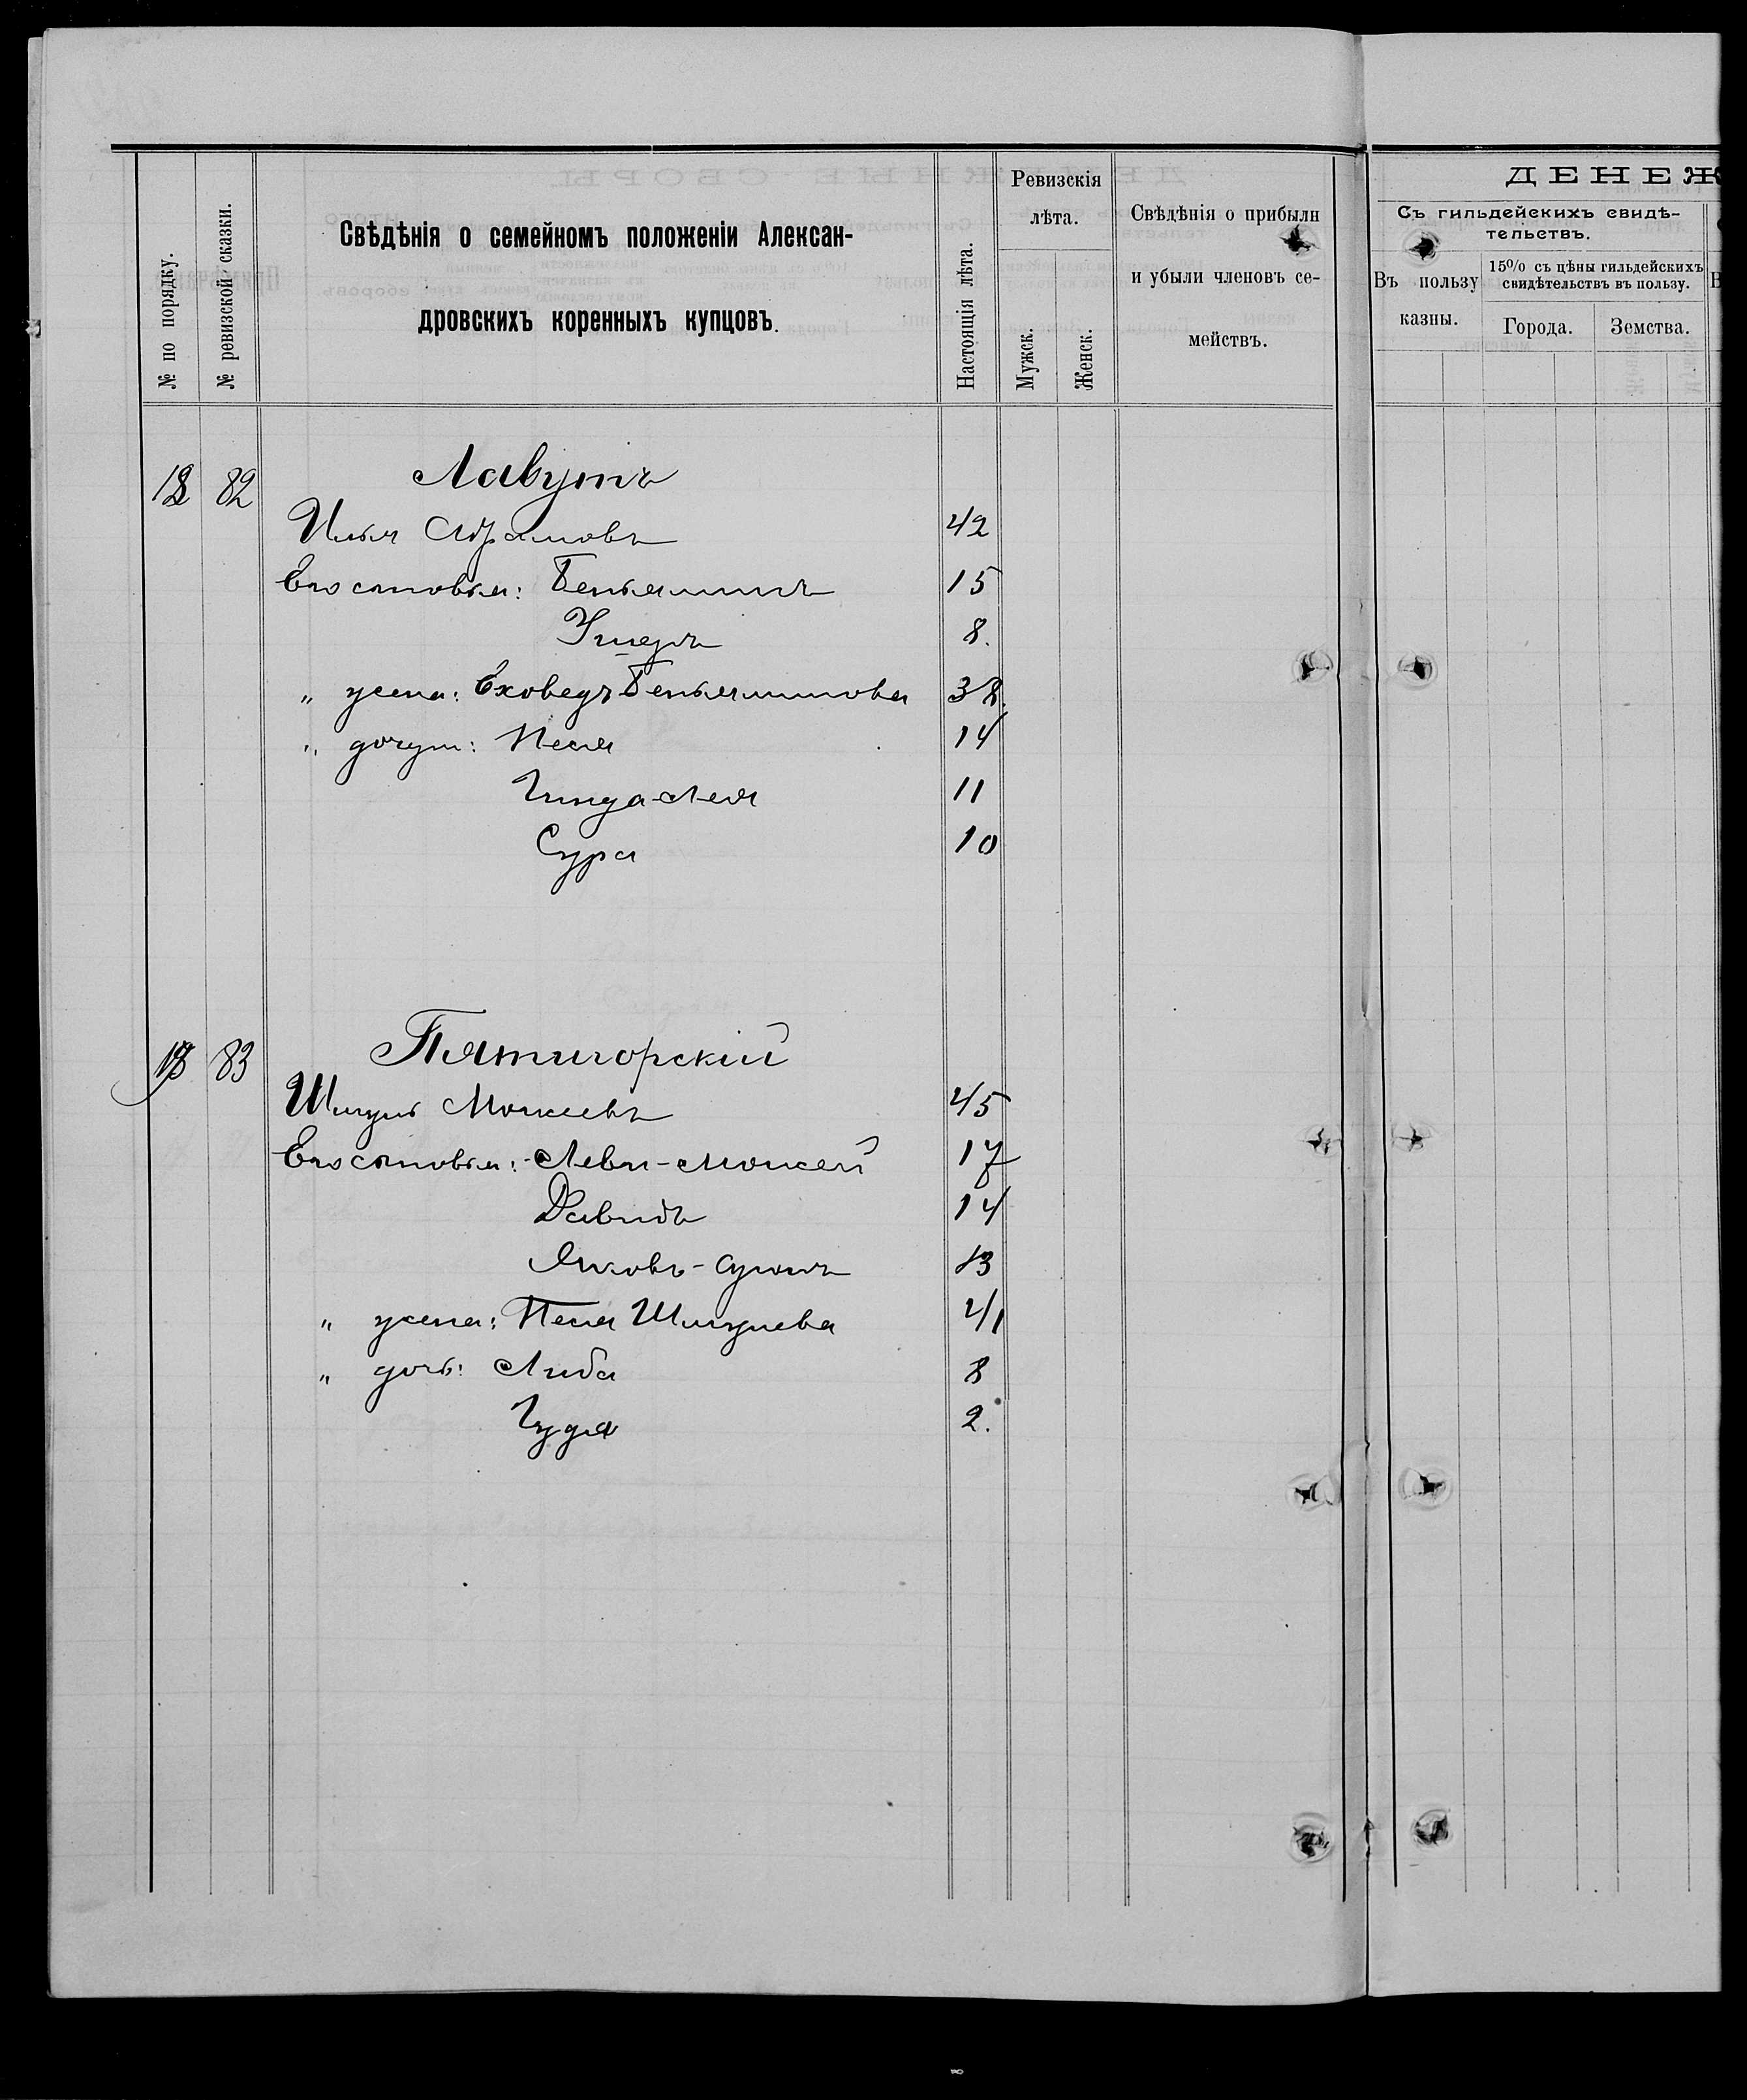 № по порядку.
№ ревизской сказки.
Свѣдѣнія о семейномъ положеніи Алексан-
дровскихъ коренныхъ купцовъ.
Настоящія лѣта.
Ревизскія
лѣта.
Мужск.
Женск.
Свѣдѣнія о прибыли
и убыли членовъ се-
мействъ.
ДЕНЕЖ
Съ гильдейскихъ свидѣ-
тельствъ.
Въ пользу
казны.
15% съ цѣны гильдейскихъ
свидѣтельствъ въ пользу.
Города.
Земства.
82 Лавутъ
Илья Абрамовъ 42
Его сыновья: Беньяминъ 15
Ушеръ 8.
„ жена: Еховедъ Беньяминова 38.
„ дочери: Песя 14
Гинда-Лея 11
Сура 10
83 Пятигорскій
Шмуль Моисеевъ 45
Его сыновья: Лева-Моисей 17
Давидъ 14
Яковъ- 13
„ жена: Песя Шмулева 41
„ дочь: Либа 8
Гудя 2.